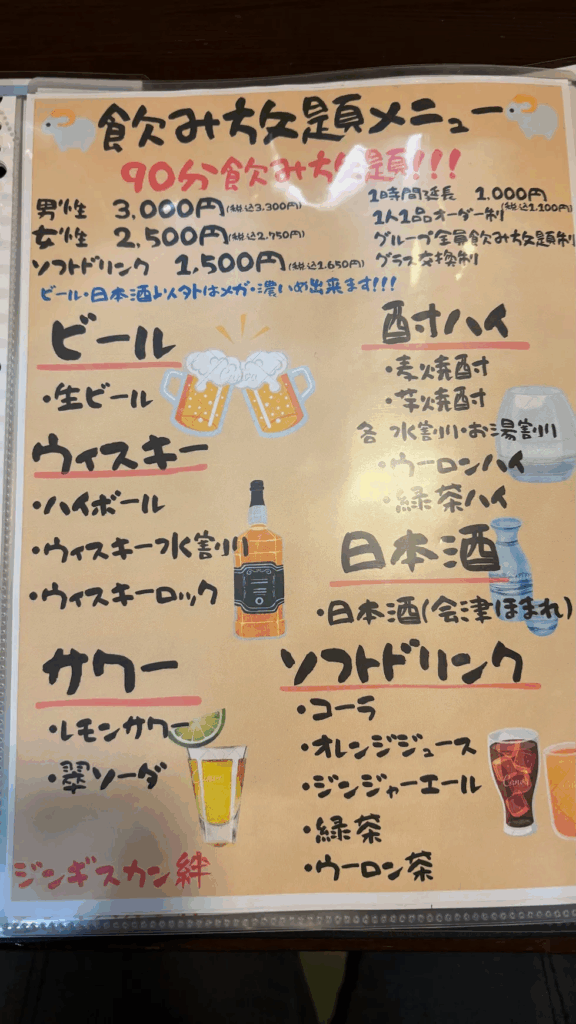 飲み放題メニュー
90分飲み放題!!!
男性 3,000円(税込3,300円)
女性 2,500円(税込2,750円)
ソフトドリンク 1,500円(税込1,650円)
1時間延長 1,000円(税込1,100円)
1人1品オーダー制
グループ全員飲み放題制
グラス交換制
ビール・日本酒以外はメガ・濃いめ出来ます!!!
ビール
・生ビール
ウィスキー
・ハイボール
・ウィスキー水割り
・ウィスキーロック
サワー
・レモンサワー
・翠ソーダ
酎ハイ
・麦焼酎
・芋焼酎
各 水割り・お湯割り
・ウーロンハイ
・緑茶ハイ
日本酒
・日本酒(会津ほまれ)
ソフトドリンク
・コーラ
・オレンジジュース
・ジンジャーエール
・緑茶
・ウーロン茶
ジンギスカン絆